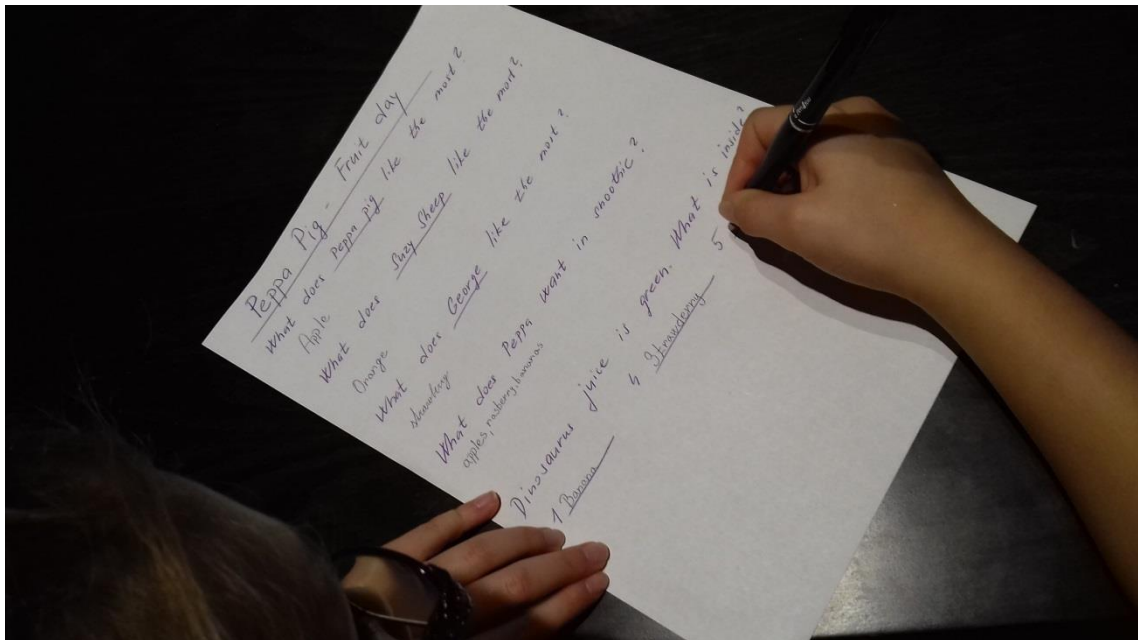 Peppa Pig - Fruit day
What does Peppa pig like the most?
Apple
What does Suzy Sheep like the most?
Orange
What does George like the most?
What does Peppa want in smoothie?
apples, rasberry, bananas
Dinosaurus juice is green. What is inside?
1 Banana 4 Strawderry 5